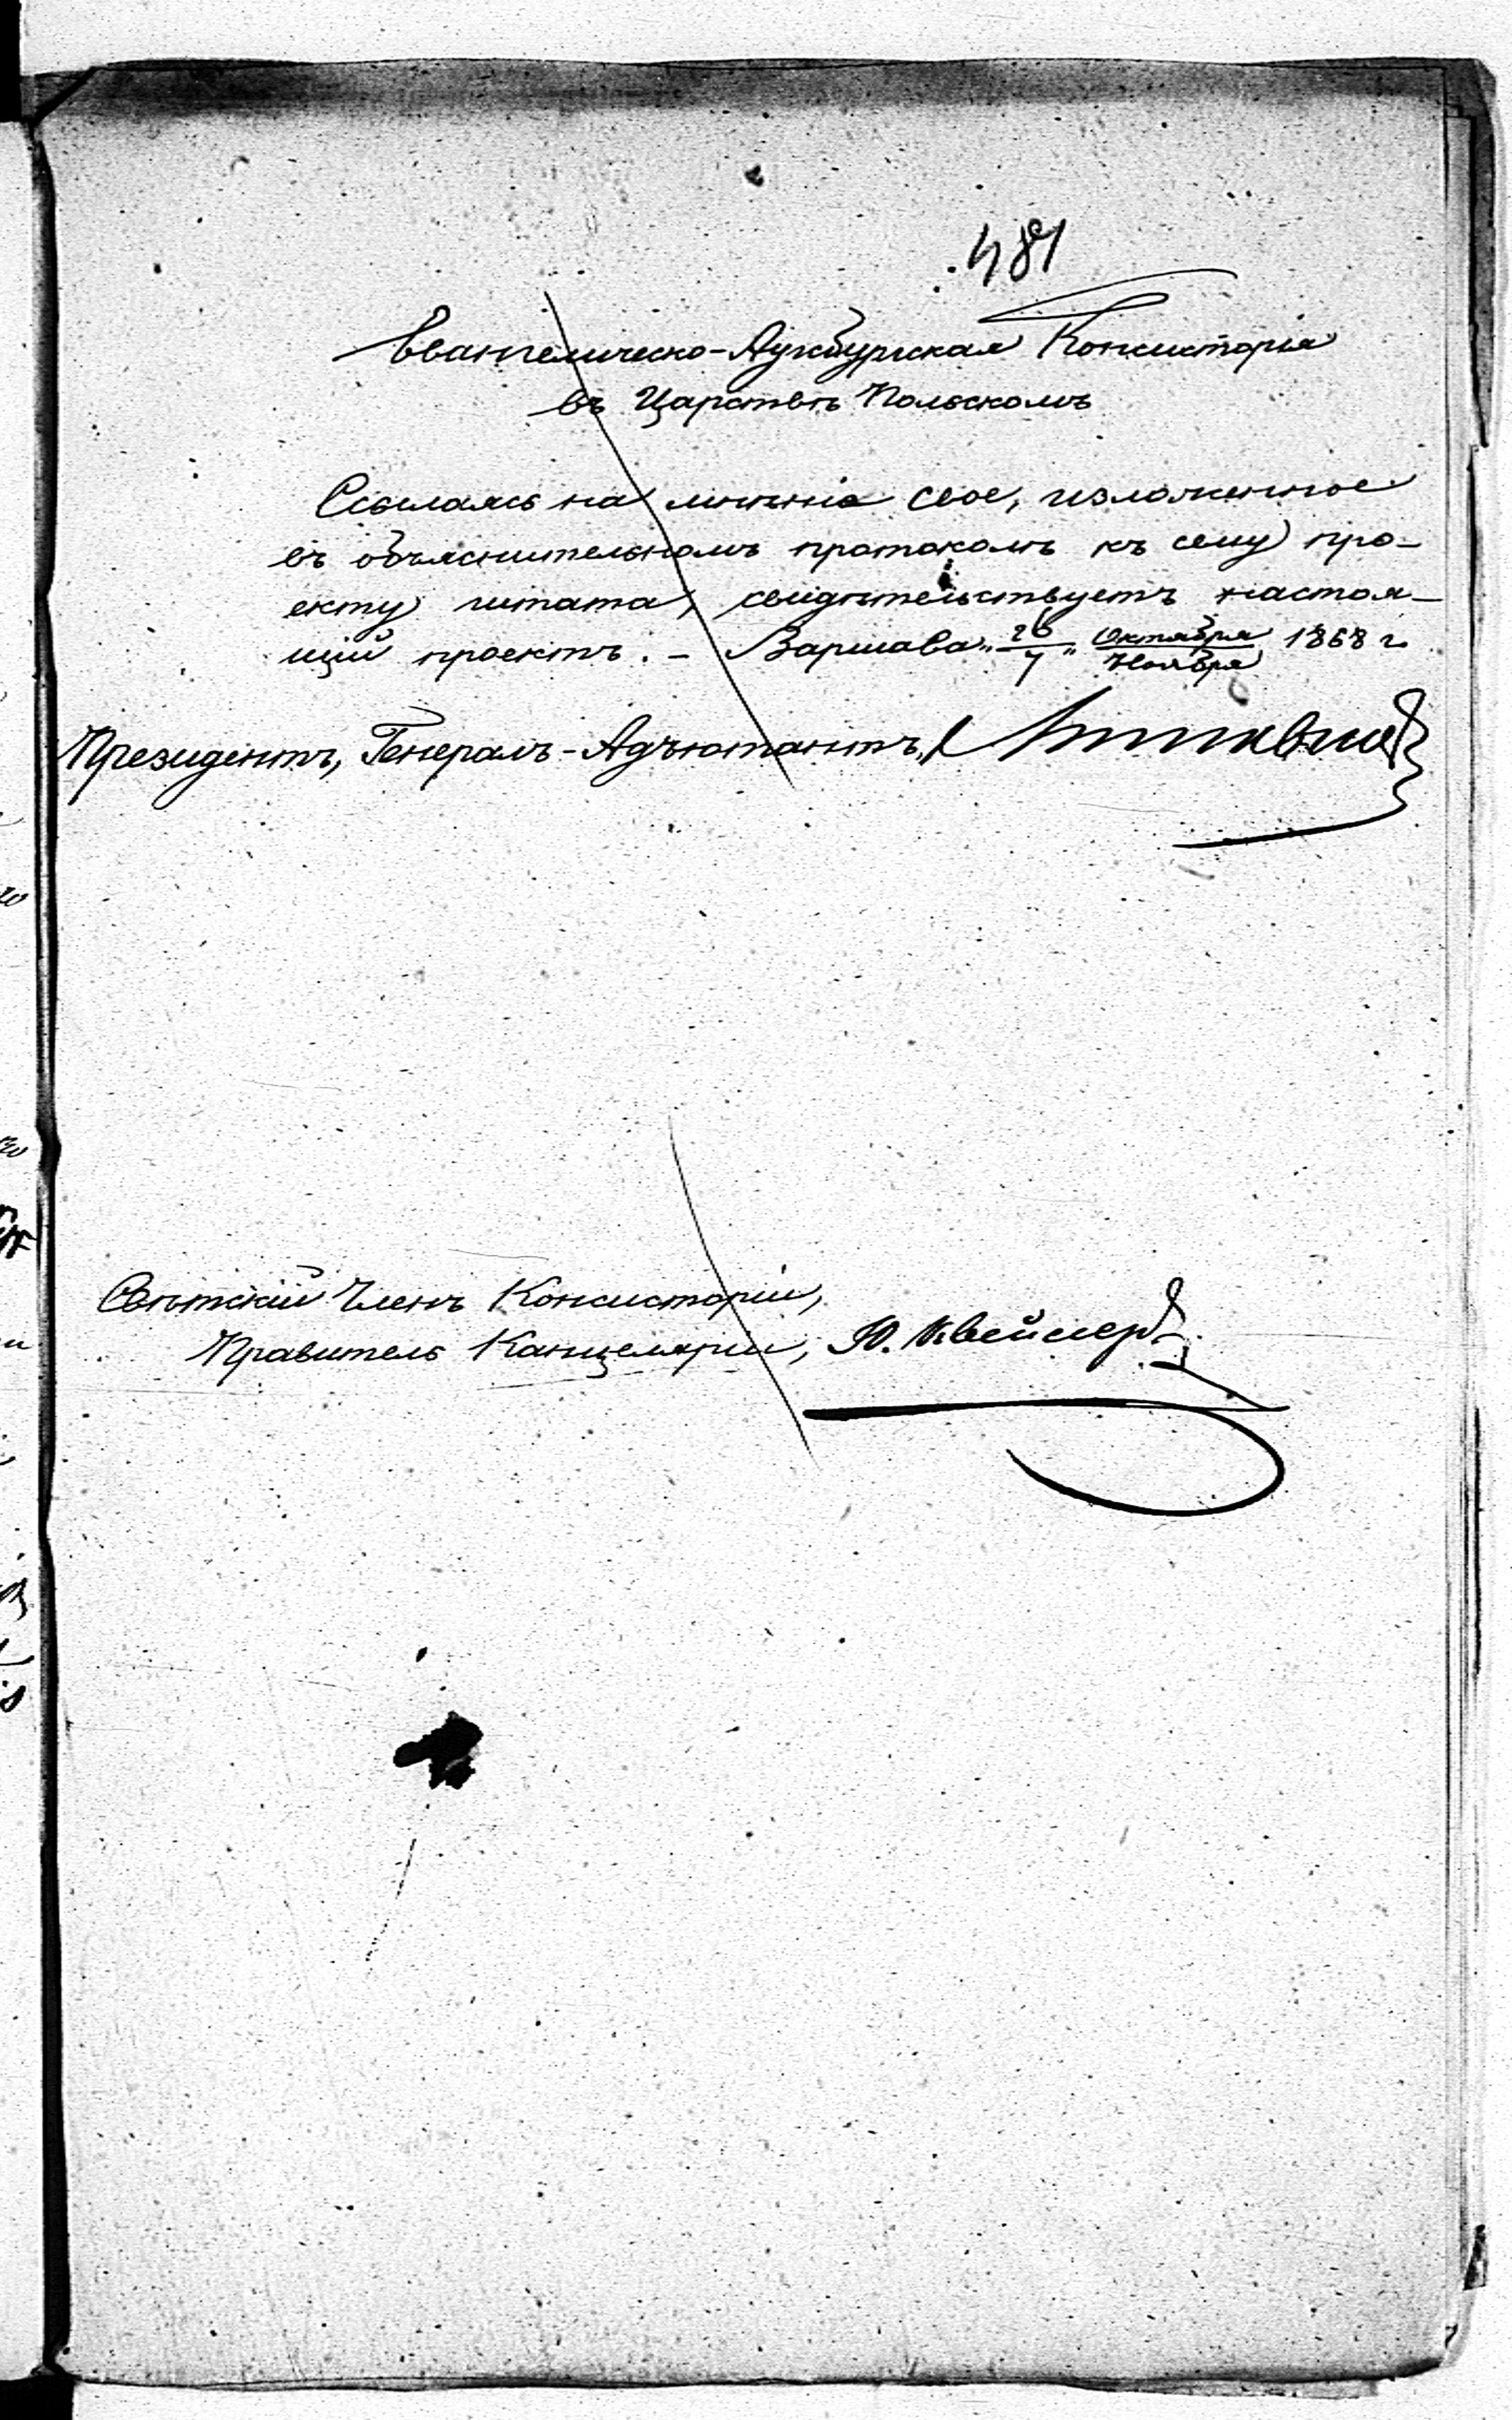 481
Евангелическо-Аугсбургская Консисторія
въ Царствѣ Польскомъ
Ссылаясь на мнѣніе свое, изложенное
въ объяснительномъ протоколѣ къ сему про-
екту штата, свидѣтельствуетъ настоя-
щій проектъ. - Варшава „26/7" Октября/Ноября 1868 г.
Президентъ, Генералъ-Адъютантъ,
Свѣтскій Членъ Консисторіи,
Правитель Канцеляріи, Ю.